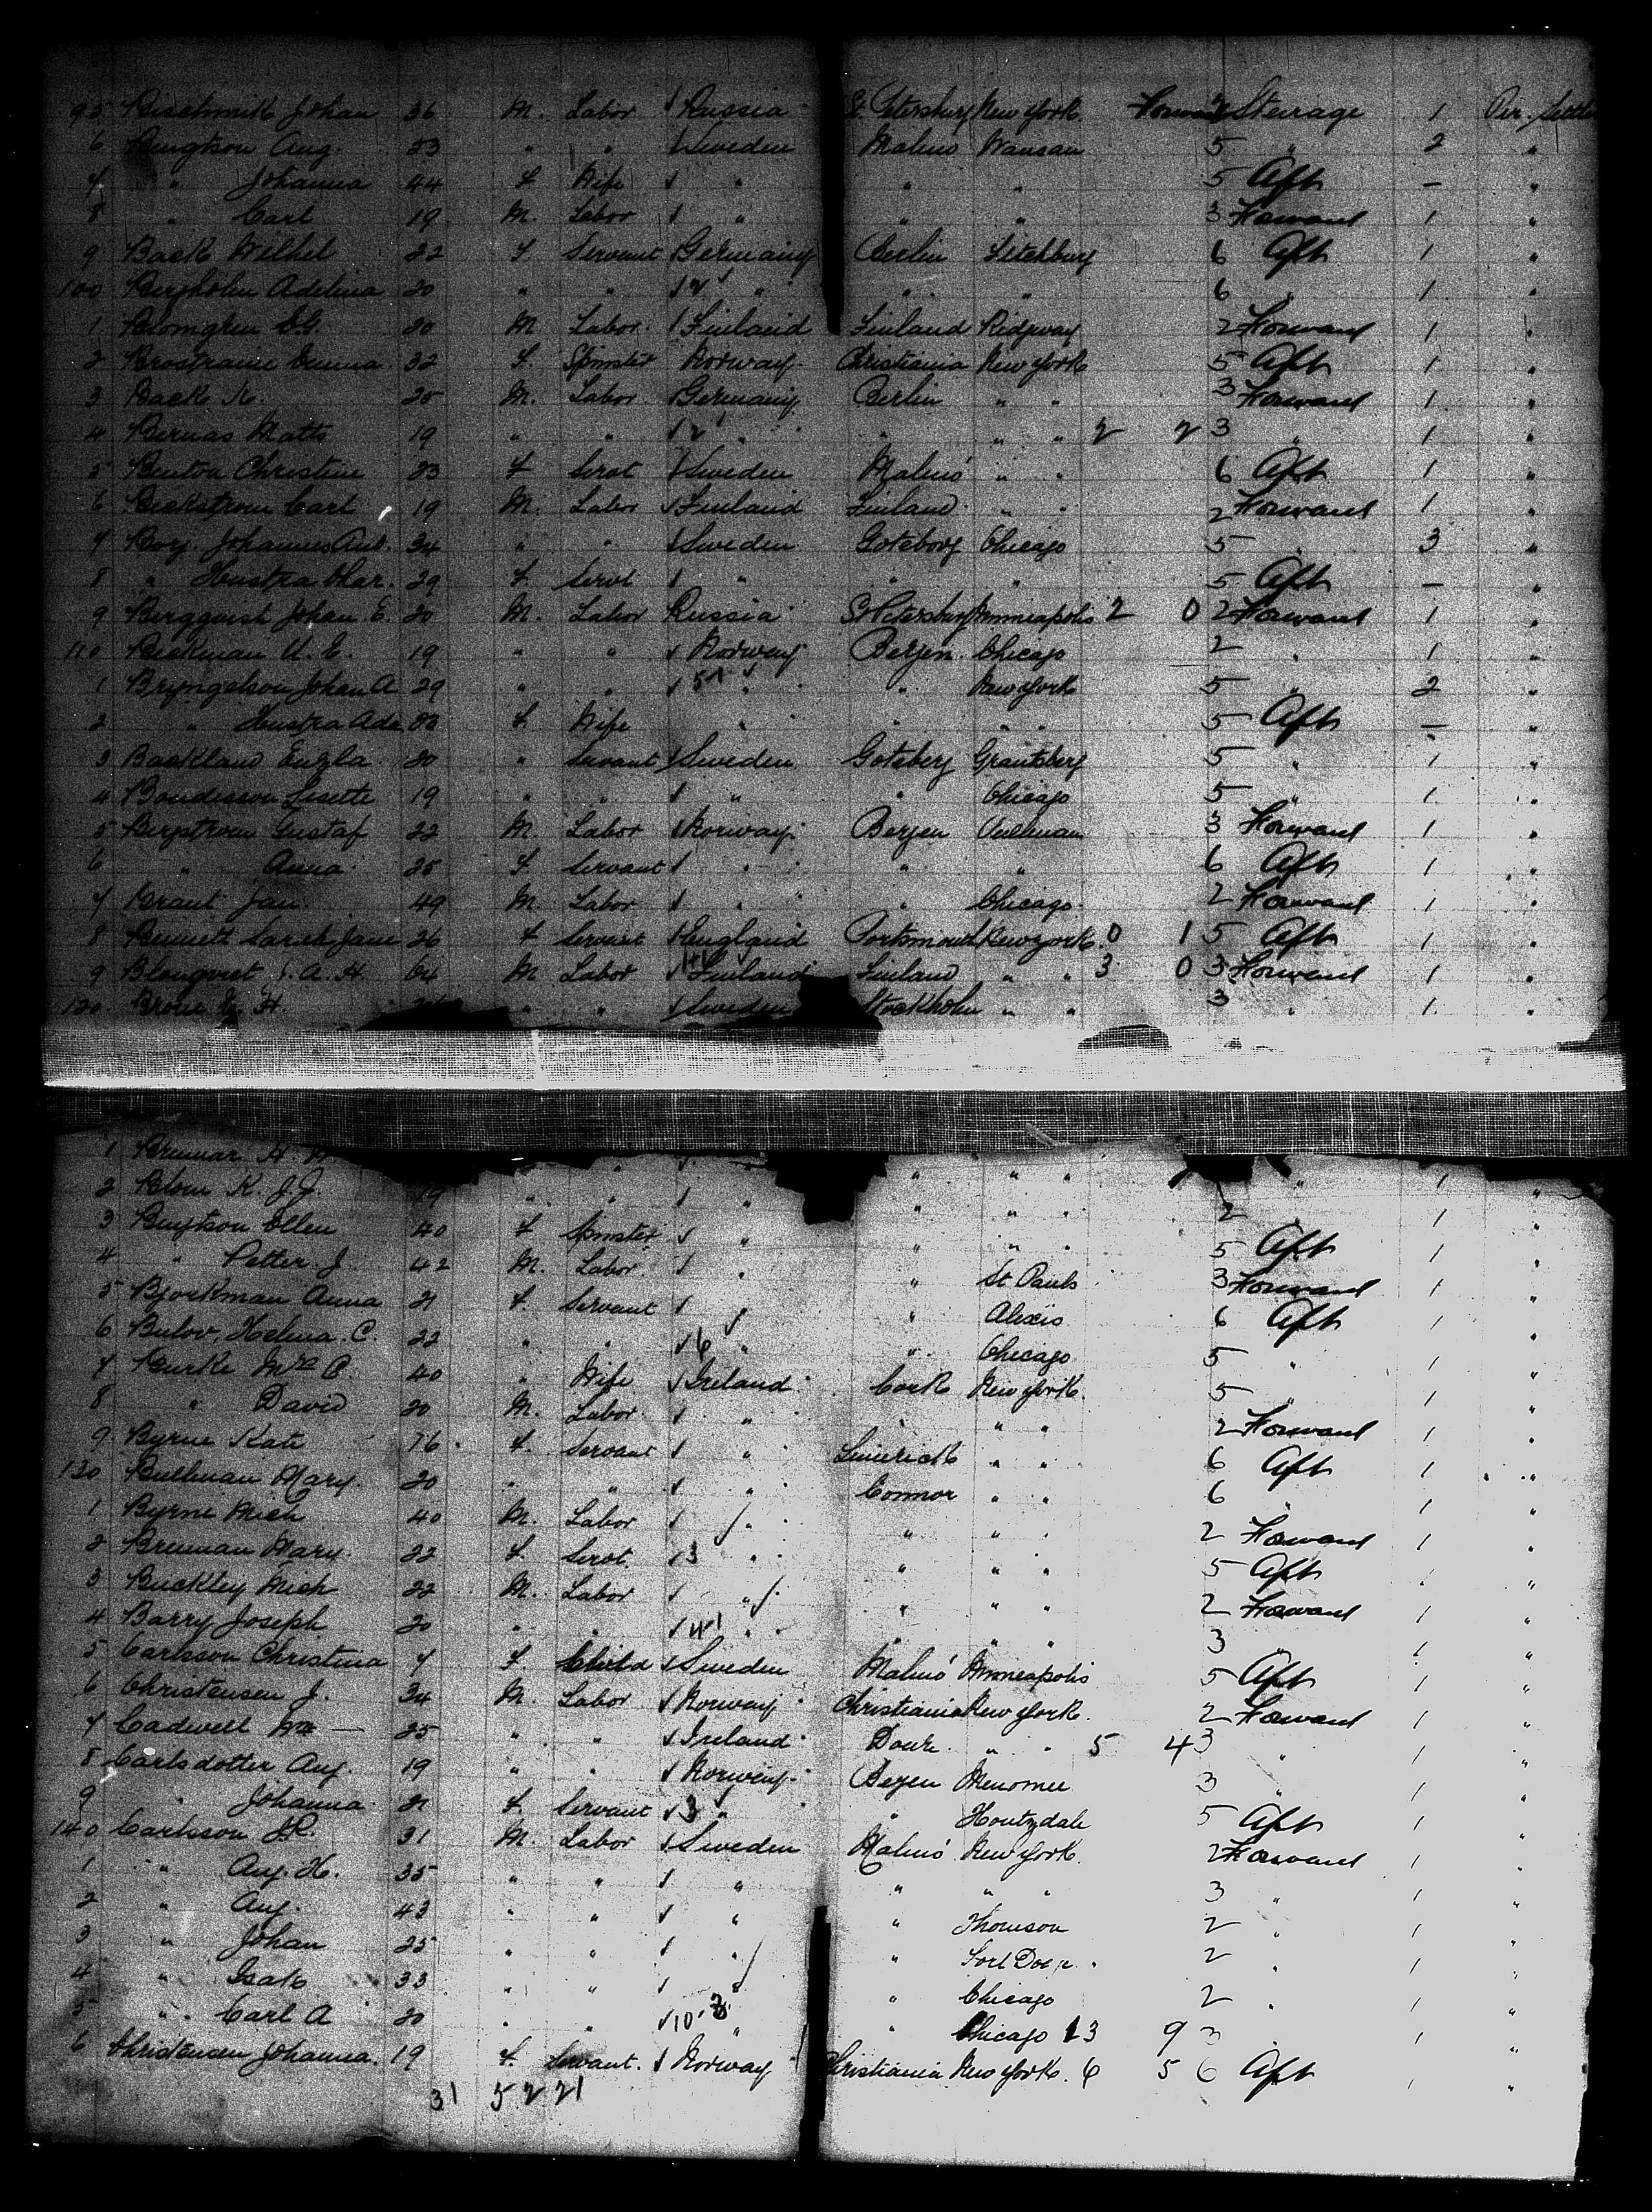 95 Johan 36 M. Labor Russia St. Petersburg New York Steirage 1 Per. Settle
6 Bengtson Aug. 23 " " Sweden Malmo Wausau 5 " 2 "
7 " Johanna 44 F Wife " " " 5 Aft — "
8 " Carl 19 M. Labor " " " 3 Forward 1 "
9 Back Wilhel 22 F Servant Germany Berlin Fitchburg 6 Aft 1 "
100 Bergholm Adelina 20 " " " " " 6 " 1 "
1 Blomgren 20 M Labor Finland Finland Ridgway 2 Forward 1 "
2 Emma 32 F. Spinster Norway Christiania New York 5 Aft 1 "
3 Back K. 25 M. Labor Germany Berlin " " 3 Forward 1 "
4 Bernas Matts 19 " " " " " " 2 2 3 " 1 "
5 Christine 23 F Servt Sweden Malmö " " 6 Aft 1 "
6 Backstrom Carl 19 M. Labor Finland Finland " " 2 Forward 1 "
7 Johannes 34 " " Sweden Goteborg Chicago 5 " 3 "
8 " Hustra Char. 29 F. Servt " " " 5 Aft — "
9 Bergquist Johan E. 20 M. Labor Russia St Petersburg Minneapolis 2 0 2 Forward 1 "
110 Beckman A. E. 19 " " Norway Bergen Chicago 2 " 1 "
1 Bryngelson Johan A 29 " " 5 " " New York 5 " 2 "
2 " Hustra Ada 33 F. Wife " " " " 5 Aft — "
3 Backland Engla 20 " Servant Sweden Goteborg Grantsberg 5 " 1 "
4 Bondesson Lisette 19 " " " " Chicago 5 " 1 "
5 Bergstrom Gustaf 22 M. Labor Norway Bergen Pullman 3 Forward 1 "
6 " Anna 25 F Servant " " " 6 Aft 1 "
7 Brant Jan 49 M. Labor " " Chicago 2 Forward 1 "
8 Bennett Sarah Jane 26 F Servant England Portsmouth New York 0 1 5 Aft 1 "
9 Blomqvist J. A. H. 64 M Labor Finland Finland " " 3 0 3 Forward 1 "
120 H. " " Sweden Stockholm " " 3 " 1 "
1 H. " " " " 1 "
2 Blom K. J. J. 19 " " " " " " 2 " 1 "
3 Bengtson Ellen 40 F Spinster " " " " 5 Aft 1 "
4 " Petter J. 42 M. Labor " " St Pauls 3 Forward 1 "
5 Bjorkman Anna 21 F. Servant " " Alexis 6 Aft 1 "
6 Bulov, Helma C. 22 " " 6 " " Chicago 5 " 1 "
7 Burke Mrs C. 40 " Wife Ireland Cork New York 5 " 1 "
8 " David 20 M. Labor " " " " 2 Forward 1 "
9 Byrne Kate 16 F. Servant " Limerick " " 6 Aft 1 "
130 Bullman Mary 20 " " " Connor " " 6 " 1 "
1 Byrne Mich 40 M. Labor " " " " 2 Forward 1 "
2 Brennan Mary 22 F. Servt. 3 " " " " 5 Aft 1 "
3 Buckley Mich 22 M. Labor " " " " 2 Forward 1 "
4 Barry Joseph 20 " " " " " " 3 " 1 "
5 Carlsson Christina 7 F. Child Sweden Malmö Minneapolis 5 Aft 1 "
6 Christensen J. 34 M. Labor Norway Christiania New York 2 Forward 1 "
7 Cadwell Wm — 25 " " Ireland " " 5 4 3 " 1 "
8 Carlsdotter Aug. 19 " " Norway Bergen Menomee 3 " 1 "
9 " Johanna 21 F. Servant 3 " " Houtzdale 5 Aft 1 "
140 Carlsson 31 M. Labor Sweden Malmö New York 2 Forward 1 "
1 " Aug. H. 35 " " " " " " 3 " 1 "
2 " Aug. 43 " " " " Thomson 2 " 1 "
3 " Johan 25 " " " " 2 " 1 "
4 " Isak 33 " " " " Chicago 2 " 1 "
5 " Carl A 20 " " 10 " " Chicago 13 9 3 1 "
6 Christensen Johanna 19 F. Servant Norway Christiania New York 6 5 6 Aft 1 "
31 5 22 21